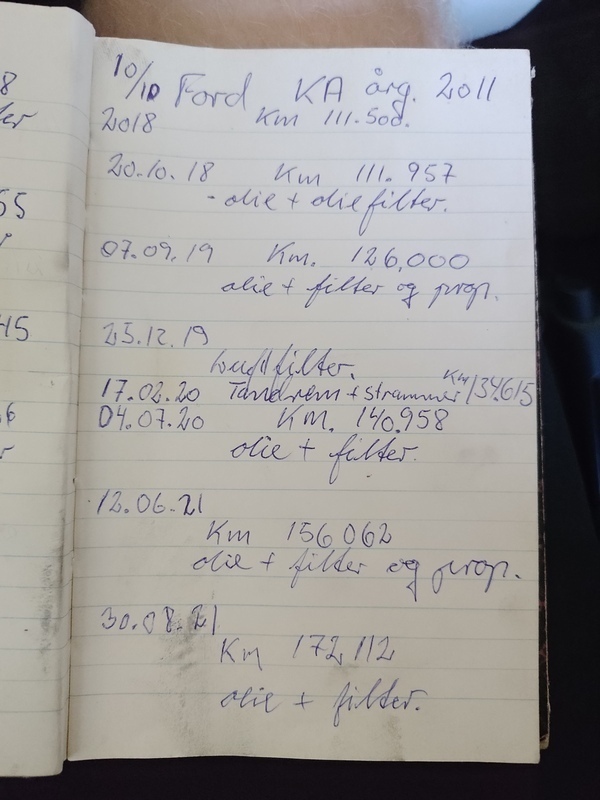 8
10/10 Ford KA årg. 2011
2018 Km 111.500.
20.10.18 Km 111.957
- olie + oliefilter.
55
07.09.19 Km. 126,000
olie + filter og prop.
45
25.12.19
Luftfilter.
17.02.20 Tandrem + strammer Km 134.615
04.07.20 KM. 140.958
olie + filter.
12.06.21
Km 156 062
olie + filter og prop.
30.08.21
Km 172 112
olie + filter.